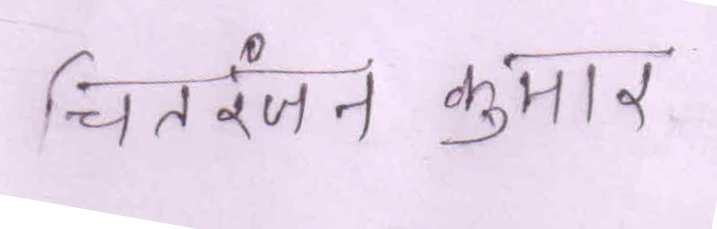 चितरंजन कुमार